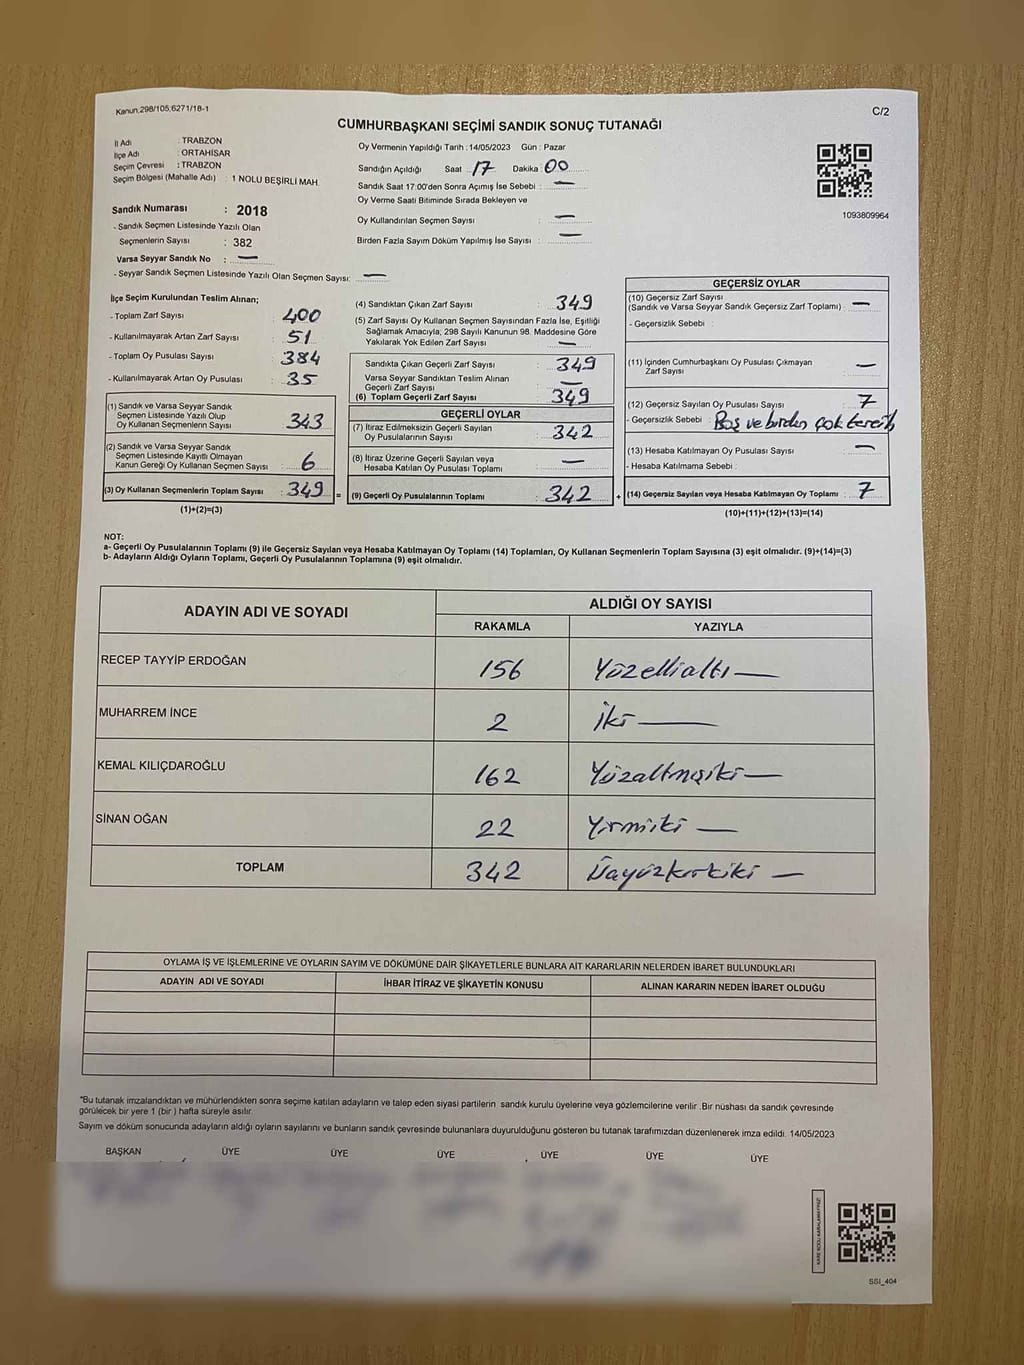 Kanun:298/105;6271/18-1
C/2
CUMHURBAŞKANI SEÇİMİ SANDIK SONUÇ TUTANAĞI
İl Adı : TRABZON
İlçe Adı : ORTAHİSAR
Seçim Çevresi : TRABZON
Seçim Bölgesi (Mahalle Adı) : 1 NOLU BEŞİRLİ MAH.
Sandık Numarası : 2018
- Sandık Seçmen Listesinde Yazılı Olan
Seçmenlerin Sayısı : 382
Varsa Seyyar Sandık No : —
- Seyyar Sandık Seçmen Listesinde Yazılı Olan Seçmen Sayısı: —
Oy Vermenin Yapıldığı Tarih :14/05/2023 Gün : Pazar
Sandığın Açıldığı Saat 17 Dakika :00
Sandık Saat 17:00'den Sonra Açımış İse Sebebi : —
Oy Verme Saati Bitiminde Sırada Bekleyen ve
Oy Kullandırılan Seçmen Sayısı : —
Birden Fazla Sayım Döküm Yapılmış İse Sayısı : —
1093809964
İlçe Seçim Kurulundan Teslim Alınan;
- Toplam Zarf Sayısı : 400
- Kullanılmayarak Artan Zarf Sayısı : 51
- Toplam Oy Pusulası Sayısı : 384
- Kullanılmayarak Artan Oy Pusulası : 35
(1) Sandık ve Varsa Seyyar Sandık
Seçmen Listesinde Yazılı Olup
Oy Kullanan Seçmenlerin Sayısı : 343
(2) Sandık ve Varsa Seyyar Sandık
Seçmen Listesinde Kayıtlı Olmayan
Kanun Gereği Oy Kullanan Seçmen Sayısı : 6
(3) Oy Kullanan Seçmenlerin Toplam Sayısı : 349 =
(1)+(2)=(3)
(4) Sandıktan Çıkan Zarf Sayısı : 349
(5) Zarf Sayısı Oy Kullanan Seçmen Sayısından Fazla İse, Eşitliği
Sağlamak Amacıyla; 298 Sayılı Kanunun 98. Maddesine Göre
Yakılarak Yok Edilen Zarf Sayısı : —
Sandıkta Çıkan Geçerli Zarf Sayısı : 349
Varsa Seyyar Sandıktan Teslim Alınan
Geçerli Zarf Sayısı : —
(6) Toplam Geçerli Zarf Sayısı : 349
GEÇERLİ OYLAR
(7) İtiraz Edilmeksizin Geçerli Sayılan
Oy Pusulalarının Sayısı : 342
(8) İtiraz Üzerine Geçerli Sayılan veya
Hesaba Katılan Oy Pusulası Toplamı : —
(9) Geçerli Oy Pusulalarının Toplamı : 342 +
GEÇERSİZ OYLAR
(10) Geçersiz Zarf Sayısı
(Sandık ve Varsa Seyyar Sandık Geçersiz Zarf Toplamı) : —
- Geçersizlik Sebebi :
(11) İçinden Cumhurbaşkanı Oy Pusulası Çıkmayan
Zarf Sayısı : —
(12) Geçersiz Sayılan Oy Pusulası Sayısı : 7
- Geçersizlik Sebebi : Boş ve birden çok tercih
(13) Hesaba Katılmayan Oy Pusulası Sayısı : —
- Hesaba Katılmama Sebebi :
(14) Geçersiz Sayılan veya Hesaba Katılmayan Oy Toplamı : 7
(10)+(11)+(12)+(13)=(14)
NOT:
a- Geçerli Oy Pusulalarının Toplamı (9) ile Geçersiz Sayılan veya Hesaba Katılmayan Oy Toplamı (14) Toplamları, Oy Kullanan Seçmenlerin Toplam Sayısına (3) eşit olmalıdır. (9)+(14)=(3)
b- Adayların Aldığı Oyların Toplamı, Geçerli Oy Pusulalarının Toplamına (9) eşit olmalıdır.
ADAYIN ADI VE SOYADI ALDIĞI OY SAYISI
RAKAMLA YAZIYLA
RECEP TAYYİP ERDOĞAN 156 Yüzellialtı —
MUHARREM İNCE 2 İki —
KEMAL KILIÇDAROĞLU 162 Yüzaltmışiki —
SİNAN OĞAN 22 Yirmiiki —
TOPLAM 342 Üçyüzkırkiki —
OYLAMA İŞ VE İŞLEMLERİNE VE OYLARIN SAYIM VE DÖKÜMÜNE DAİR ŞİKAYETLERLE BUNLARA AİT KARARLARIN NELERDEN İBARET BULUNDUKLARI
ADAYIN ADI VE SOYADI İHBAR İTİRAZ VE ŞİKAYETİN KONUSU ALINAN KARARIN NEDEN İBARET OLDUĞU
"Bu tutanak imzalandıktan ve mühürlendikten sonra seçime katılan adayların ve talep eden siyasi partilerin sandık kurulu üyelerine veya gözlemcilerine verilir .Bir nüshası da sandık çevresinde
görülecek bir yere 1 (bir ) hafta süreyle asılır.
Sayım ve döküm sonucunda adayların aldığı oyların sayılarını ve bunların sandık çevresinde bulunanlara duyurulduğunu gösteren bu tutanak tarafımızdan düzenlenerek imza edildi. 14/05/2023
BAŞKAN ÜYE ÜYE ÜYE ÜYE ÜYE ÜYE
KARE KODU KARALAMAYINIZ!
SSI_404